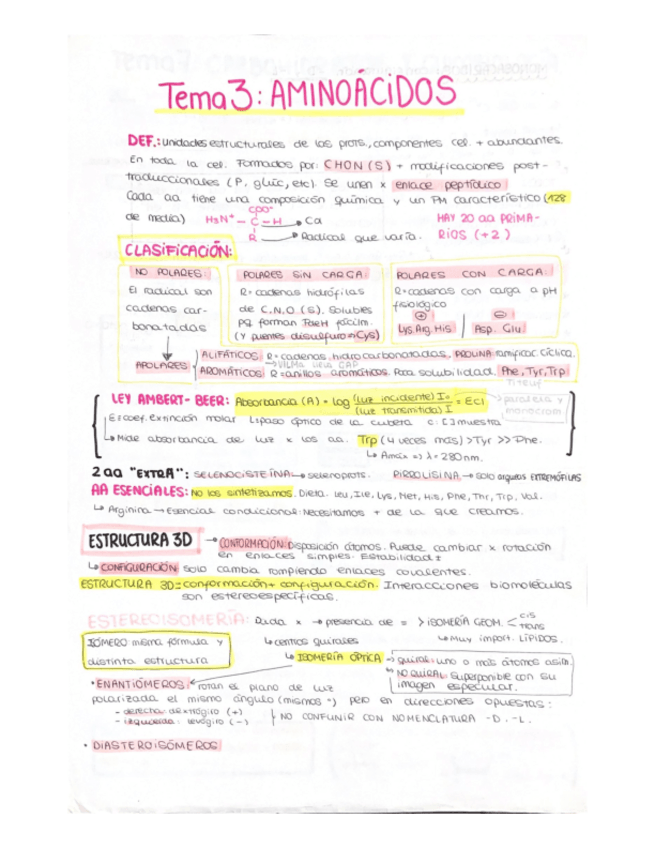 Tema 3: AMINOÁCIDOS
DEF.: unidades estructurales de las prots., componentes cel. + abundantes.
En toda la cel. Formados por: CHON (S) + modificaciones post-
traduccionales (P, glúc, etc). Se unen x enlace peptídico
Cada aa tiene una composición química y un PM característico (128
de media)
COO-
H3N+ - C - H → Cα
R → Radical que varía.
HAY 20 aa PRIMA-
RIOS (+2)
CLASIFICACIÓN:
NO POLARES:
El radical son
cadenas car-
bonatadas
APOLARES
POLARES SIN CARGA:
R = cadenas hidrófilas
de C,N,O (S). Solubles
pq forman PdeH fácilm.
(Y puentes disulfuro = Cys)
POLARES CON CARGA:
R = cadenas con carga a pH
fisiológico
⊕ ⊖
Lys, Arg, His Asp, Glu
ALIFÁTICOS: R = cadenas hidrocarbonatadas, PROLINA: ramificac. cíclica.
AROMÁTICOS: R = anillos aromáticos. Poca solubilidad. Phe, Tyr, Trp
LEY AMBERT-BEER: Absorbancia (A) = log (luz incidente) I₀ / (luz transmitida) I = Ecl
para lexis y
monocrom
E: coef. extinción molar l: paso óptico de la cubeta c: [ ] muestra
↳ Mide absorbancia de luz x los aa. Trp (4 veces más) > Tyr >> Phe.
↳ Amáx => λ = 280nm.
2 aa "EXTRA": SELENOCISTEÍNA ↳ selenoprots. PIRROLISINA → solo arqueas EXTREMÓFILAS
AA ESENCIALES: No los sintetizamos. Dieta. Leu, Ile, Lys, Met, His, Phe, Thr, Trp, Val.
↳ Arginina → Esencial condicional: Necesitamos + de la que creamos.
ESTRUCTURA 3D → CONFORMACIÓN: Disposición átomos. Puede cambiar x rotación
en enlaces simples. Estabilidad ±
↳ CONFIGURACIÓN: solo cambia rompiendo enlaces covalentes.
ESTRUCTURA 3D = conformación + configuración. Interacciones biomoléculas
son estereoespecíficas.
ESTEREOISOMERÍA: Dada x → presencia de = > ISOMERÍA GEOM. < cis
trans
ISÓMERO misma fórmula y
distinta estructura
↳ centros quirales
↳ Muy import. LÍPIDOS.
↳ ISOMERÍA ÓPTICA → quiral: uno o más átomos asim.
NO QUIRAL: superponible con su
imagen especular.
• ENANTIÓMEROS: rotan el plano de luz
polarizada el mismo ángulo (mismos °) pero en direcciones opuestas:
- derecha: dextrógiro (+)
- izquierda: levógiro (-)
NO CONFUNIR CON NOMENCLATURA -D, -L.
• DIASTEROISÓMEROS: